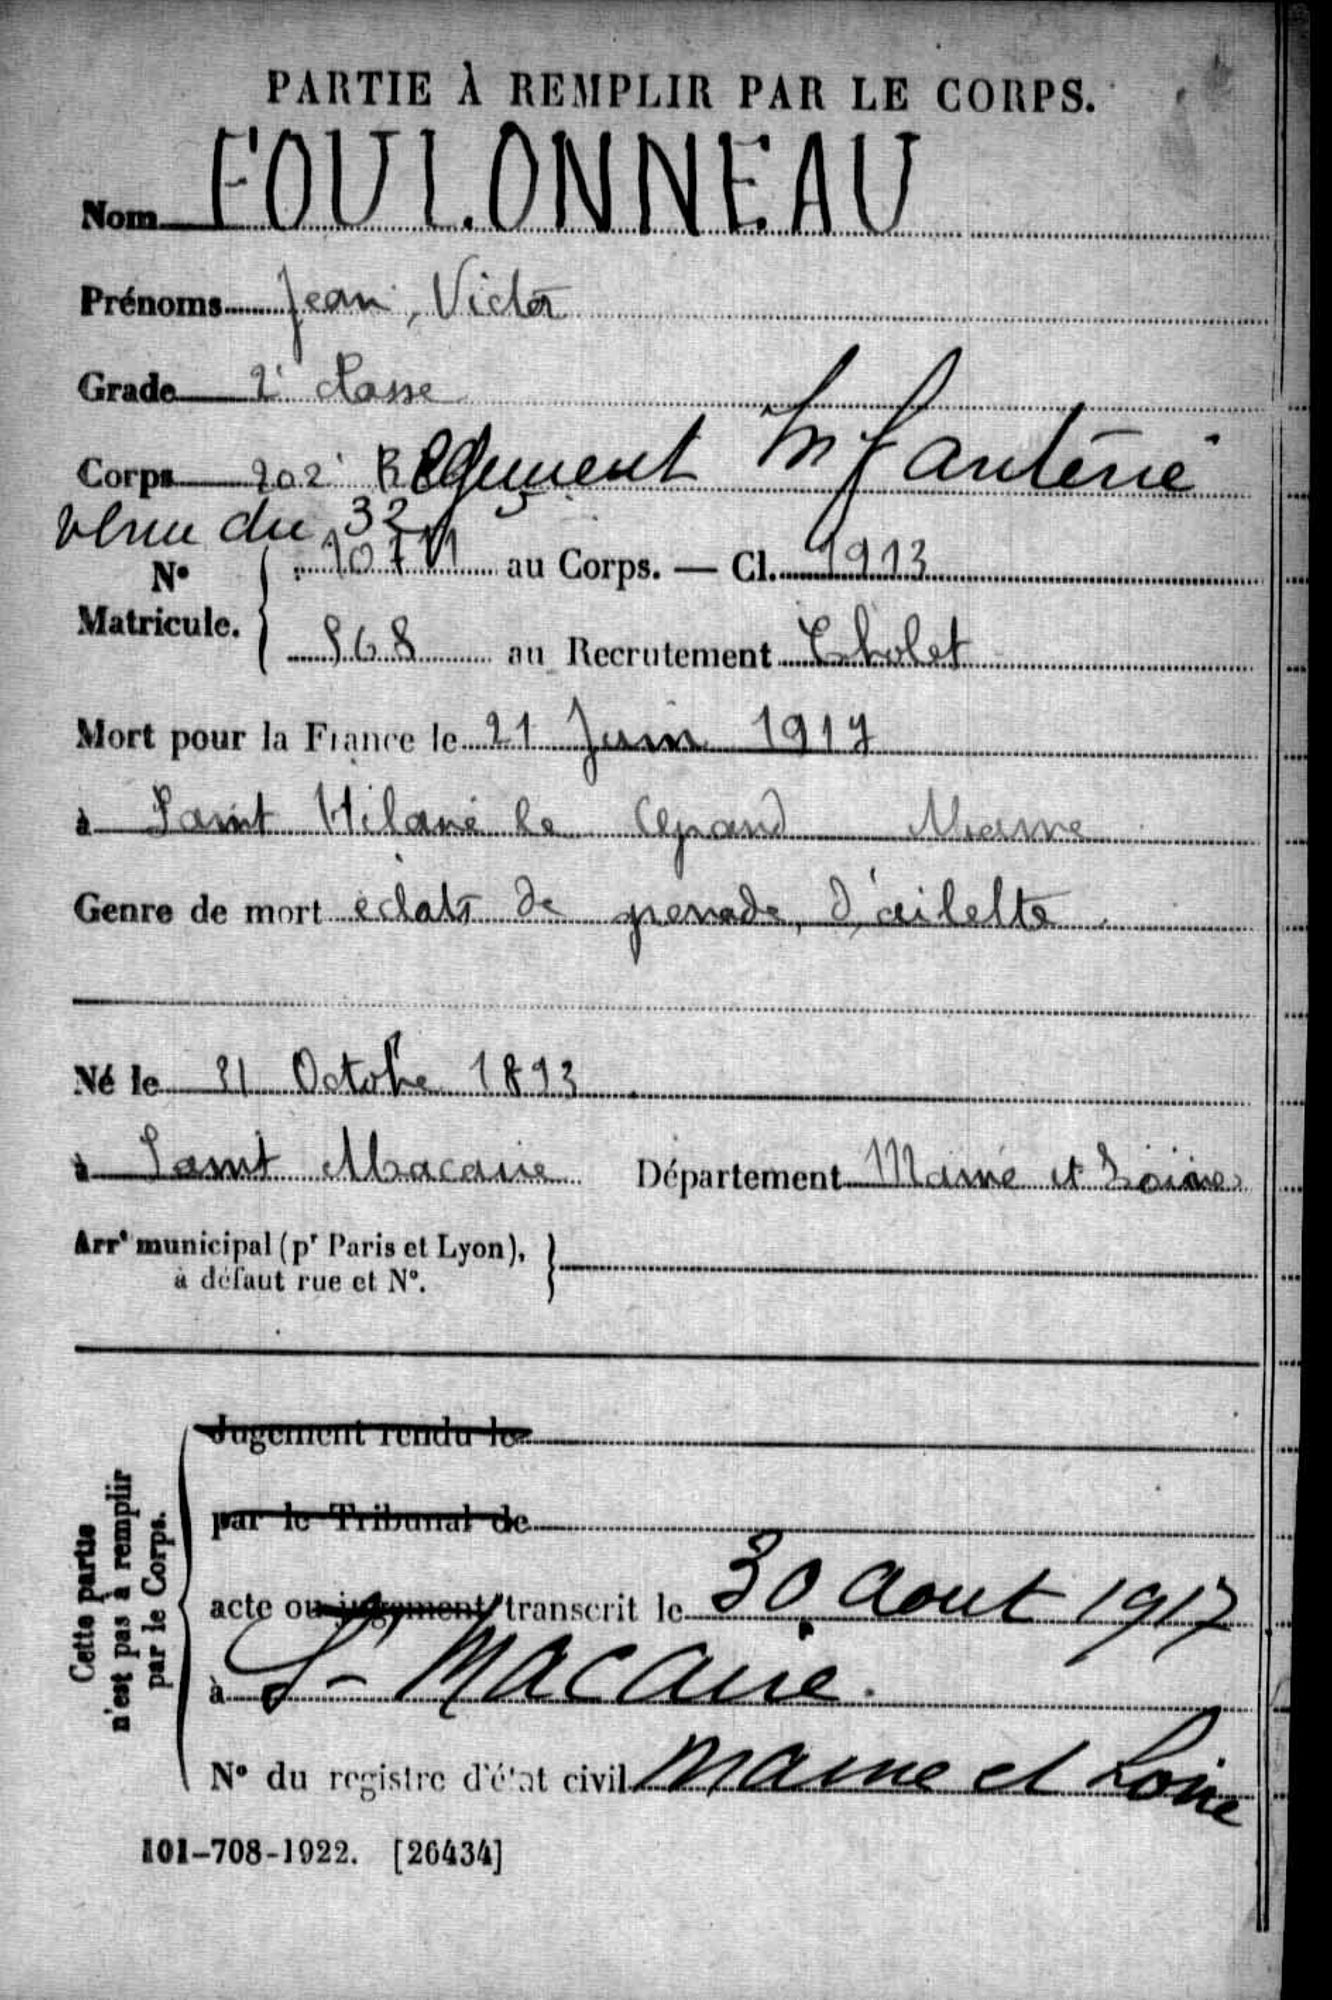 PARTIE À REMPLIR PAR LE CORPS.
Nom FOULONNEAU
Prénoms Jean, Victor
Grade 2e classe
Corps 202e Régiment Infanterie
venu du 32
N° Matricule. 10711 au Corps. — Cl. 1913
968 au Recrutement Cholet
Mort pour la France le 21 Juin 1917
à Saint Hilaire le Grand Marne
Genre de mort éclats de grenade, d'ailette
Né le 31 Octobre 1893
à Saint Macaire Département Maine et Loire
Arrt municipal (pr Paris et Lyon),
à défaut rue et N°.
Cette partie
n'est pas à remplir
par le Corps.
Jugement rendu le
par le Tribunal de
acte ou jugement transcrit le 30 Aout 1917
à St Macaire.
N° du registre d'état civil Maine et Loire
101-708-1922. [26434]